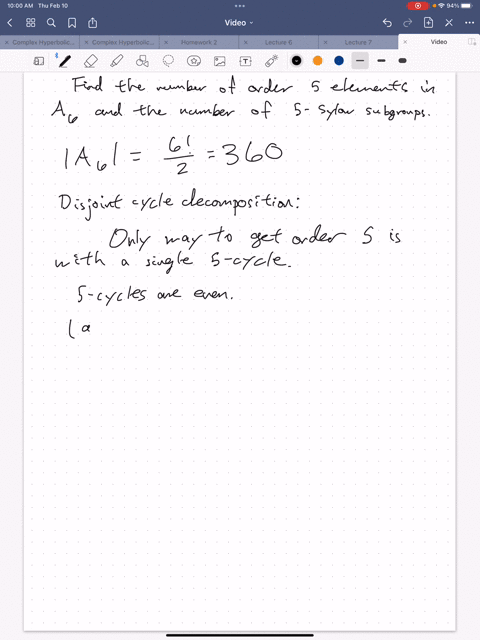 10:00 AM Thu Feb 10
94%
Video
Complex Hyperbolic...
Complex Hyperbolic...
Homework 2
Lecture 6
Lecture 7
Video
Find the number of order 5 elements in
A₆ and the number of 5-Sylow subgroups.
|A₆| = 6!/2 = 360
Disjoint cycle decomposition:
Only way to get order 5 is
with a single 5-cycle.
5-cycles are even.
( a